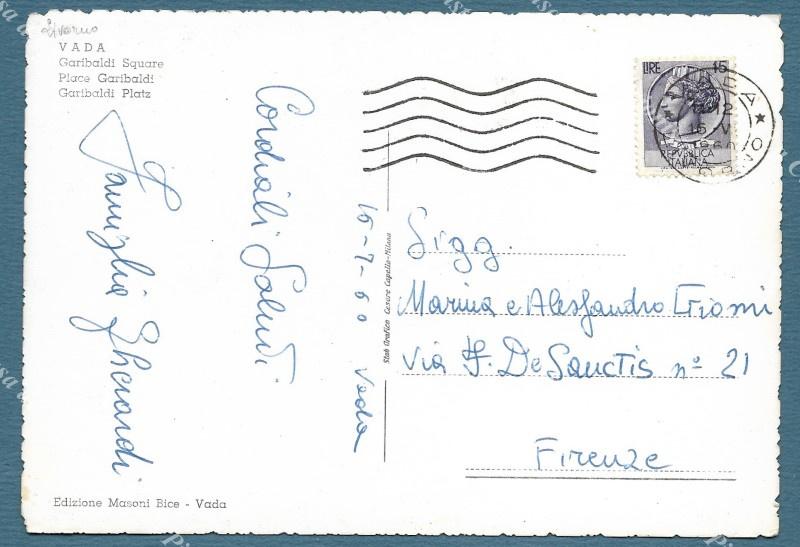 Livorno
VADA
Garibaldi Square
Place Garibaldi
Garibaldi Platz
Cordiali Saluti
Famiglia Gherardi
15-7-60 Vada
Stab Grafico Cesare Capello-Milano
LIRE 15
REPVBBLICA
ITALIANA
Sigg.
Marina e Alessandro
Via F. De Sanctis nº 21
Firenze
Edizione Masoni Bice - Vada